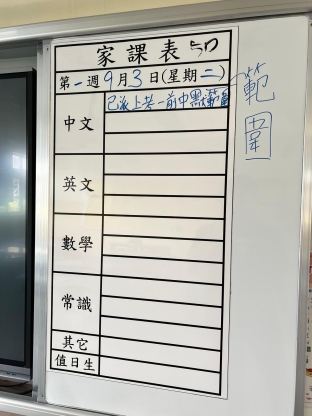 家課表 5D
第一週9月3日(星期二)
中文
已派上老一前中默範圍
英文
數學
常識
其它
值日生
範圍